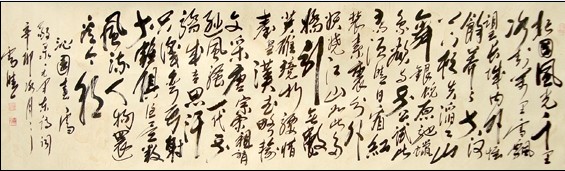 北國風光千里
冰封万里雪飘
望长城内外惟
餘莽莽大河
上下顿失滔滔山
舞銀蛇原驰蜡
象欲与天公试比
高须晴日看红
装素裹分外
妖娆江山如此多
娇引无数
英雄竞折腰惜
秦皇漢武略输
文采唐宗宋祖稍
逊風骚一代天
骄成吉思汗
只识弯弓射
大雕俱往矣数
風流人物還
看今朝
沁園春雪
辛卯冬月